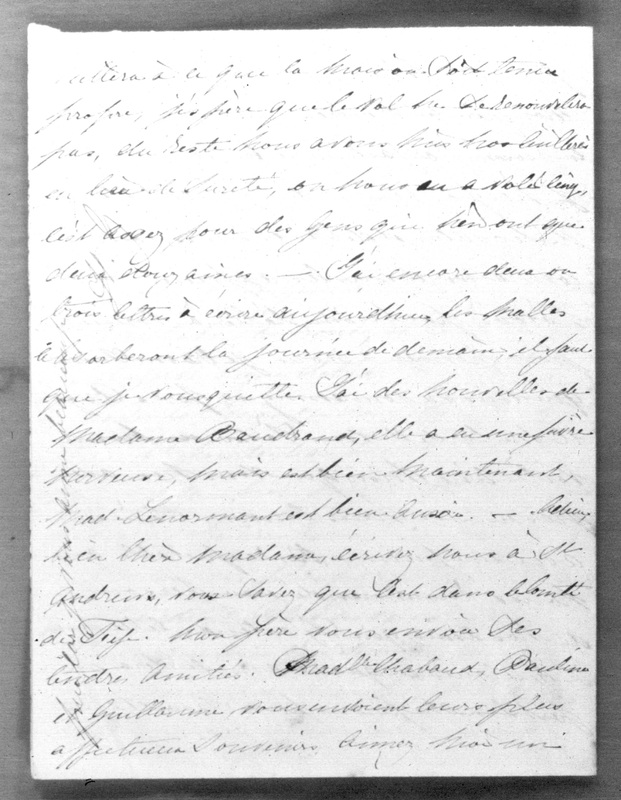 à ce que la maison soit tenue
propre, j'espère que le vol ne se renouvelera
pas, du reste nous avons mis nos cuillères
en lieu de sureté, on nous en a volé cinq,
c'est assez pour des gens qui n'en ont que
deux douzaines. — J'ai encore deux ou
trois lettres à écrire aujourdhui, les malles
absorberont la journée de demain, il faut
que je vous quitte. J'ai des nouvelles de
Madame Baudrand, elle a eu une fièvre
nerveuse, mais est bien maintenant,
Mad. Lenormant est bien aussi. — Adieu,
bien chère Madame, écrivez nous à St
Andrews, vous savez que c'est dans le Comté
de Fife. Mon père vous envoie ses
tendres amitiés. Madlle Chabaud, Pauline
et Guillaume vous envoient leurs plus
affectueux souvenirs. Aimez moi